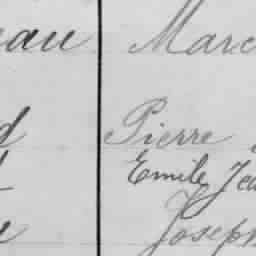 eau Marc
d Pierre
Emile Jea
Joseph